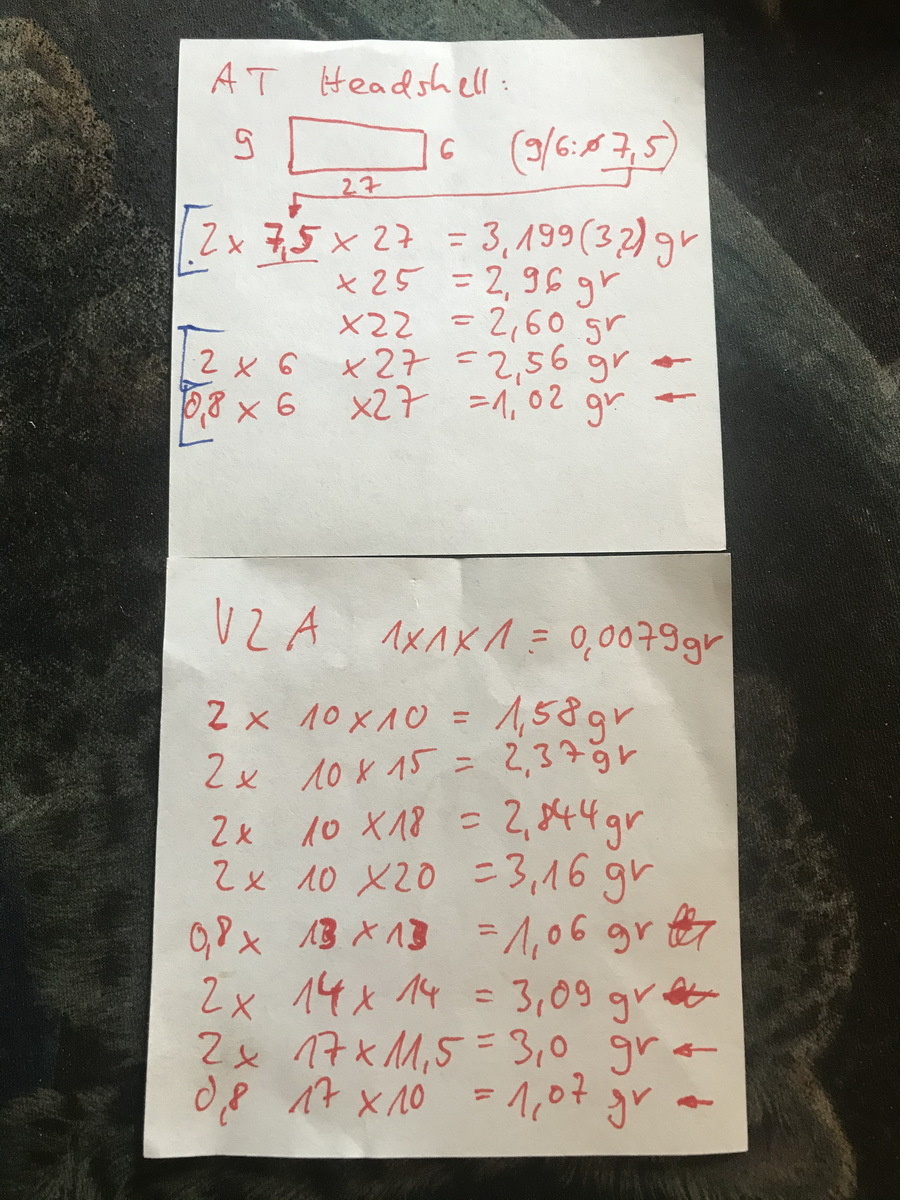 AT Headshell:
9 6 (9/6:ø 7,5)
27
2 x 7,5 x 27 = 3,199 (3,2) gr
x 25 = 2,96 gr
x 22 = 2,60 gr
2 x 6 x 27 = 2,56 gr ←
0,8 x 6 x 27 = 1,02 gr ←
V2A 1x1x1 = 0,0079 gr
2 x 10 x 10 = 1,58 gr
2 x 10 x 15 = 2,37 gr
2 x 10 x 18 = 2,844 gr
2 x 10 x 20 = 3,16 gr
0,8 x 13 x 13 = 1,06 gr
2 x 14 x 14 = 3,09 gr
2 x 17 x 11,5 = 3,0 gr ←
0,8 17 x 10 = 1,07 gr ←